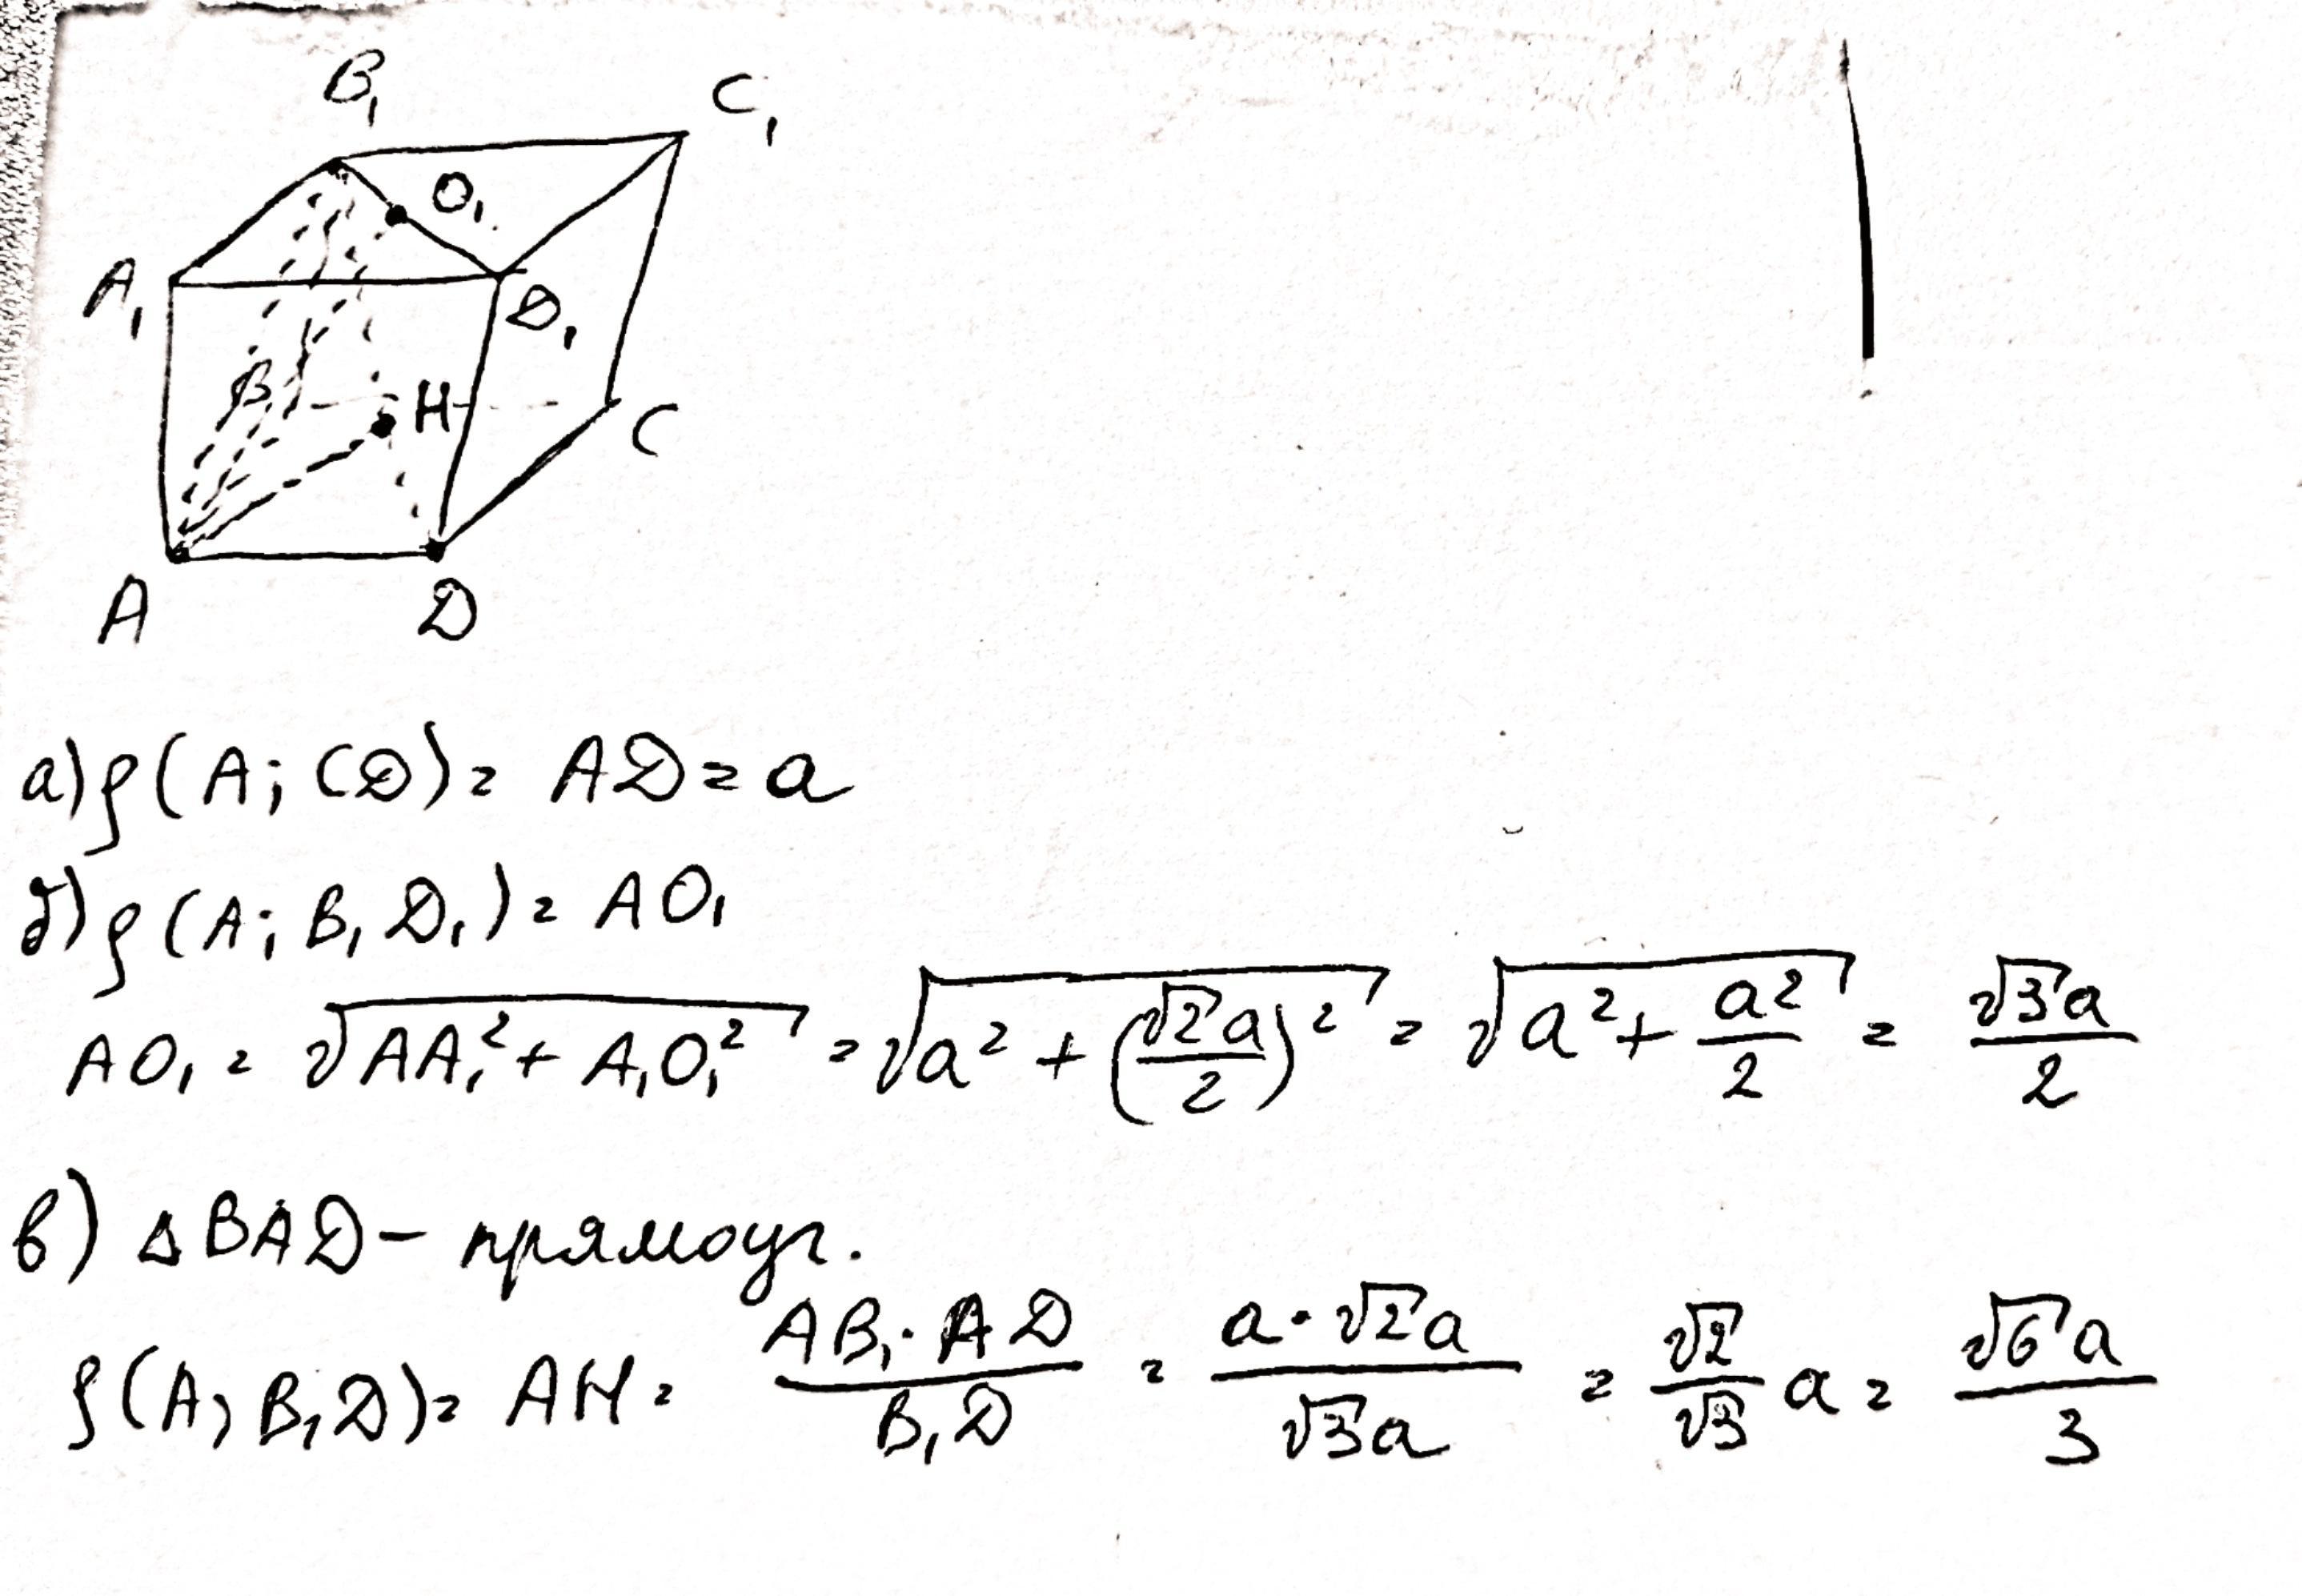 B₁ C₁
O₁
A₁ D₁
B H C
A D
а) ρ(A; CD) = AD = a
б) ρ(A; B₁D₁) = AO₁
AO₁ = √(AA₁² + A₁O₁²) = √(a² + (√2a/2)²) = √(a² + a²/2) = √3a/2
в) △BAD – прямоуг.
ρ(A; B₁D) = AH = AB₁·AD/B₁D = a·√2a/√3a = √2/√3 a = √6a/3